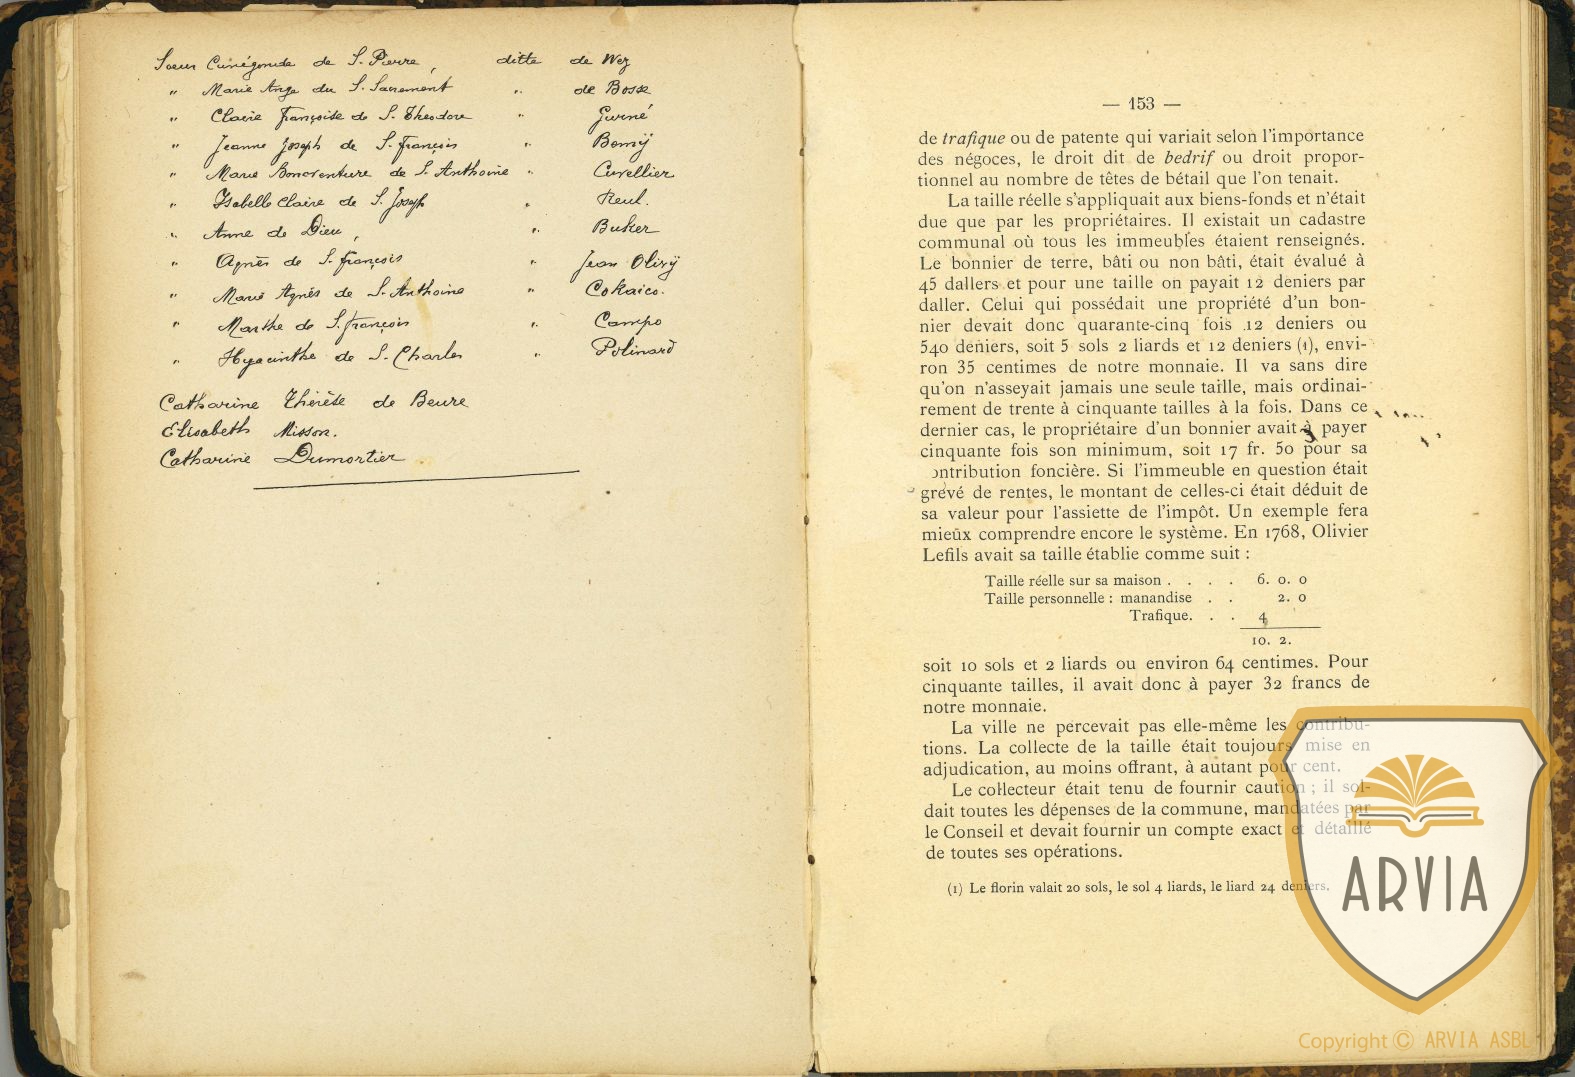 Soeur Cunégonde de S. Pierre, ditte de Wez
" Marie Ange du S. Sacrement " de Bosse
" Claire Françoise de S. Théodore "
" Jeanne Joseph de S. François " Bomÿ
" Marie Bonaventure de S. Anthoine " Cuvellier
" Isabelle Claire de S. Joseph " Reul.
" Anne de Dieu, " Buker
" Agnès de S. François " Jean Olivÿ
" Marie Agnès de S. Anthoine " Cokaico.
" Marthe de S. François " Campo
" Hyacinthe de S. Charles " Polinard
Catharine Thérèse de Beure
Elisabeth Misson.
Catharine Dumortier
— 153 —
de trafique ou de patente qui variait selon l'importance
des négoces, le droit dit de bedrif ou droit propor-
tionnel au nombre de têtes de bétail que l'on tenait.
La taille réelle s'appliquait aux biens-fonds et n'était
due que par les propriétaires. Il existait un cadastre
communal où tous les immeubles étaient renseignés.
Le bonnier de terre, bâti ou non bâti, était évalué à
45 dallers et pour une taille on payait 12 deniers par
daller. Celui qui possédait une propriété d'un bon-
nier devait donc quarante-cinq fois 12 deniers ou
540 deniers, soit 5 sols 2 liards et 12 deniers (1), envi-
ron 35 centimes de notre monnaie. Il va sans dire
qu'on n'asseyait jamais une seule taille, mais ordinai-
rement de trente à cinquante tailles à la fois. Dans ce
dernier cas, le propriétaire d'un bonnier avait à payer
cinquante fois son minimum, soit 17 fr. 50 pour sa
ontribution foncière. Si l'immeuble en question était
grevé de rentes, le montant de celles-ci était déduit de
sa valeur pour l'assiette de l'impôt. Un exemple fera
mieux comprendre encore le système. En 1768, Olivier
Lefils avait sa taille établie comme suit :
Taille réelle sur sa maison . . . . 6. 0. 0
Taille personnelle : manandise . . 2. 0
Trafique. . . 4
10. 2.
soit 10 sols et 2 liards ou environ 64 centimes. Pour
cinquante tailles, il avait donc à payer 32 francs de
notre monnaie.
La ville ne percevait pas elle-même les contribu-
tions. La collecte de la taille était toujours mise en
adjudication, au moins offrant, à autant pour cent.
Le collecteur était tenu de fournir caution ; il sol-
dait toutes les dépenses de la commune, mandatées par
le Conseil et devait fournir un compte exact et détaillé
de toutes ses opérations.
(1) Le florin valait 20 sols, le sol 4 liards, le liard 24 deniers.
ARVIA
Copyright © ARVIA ASBL